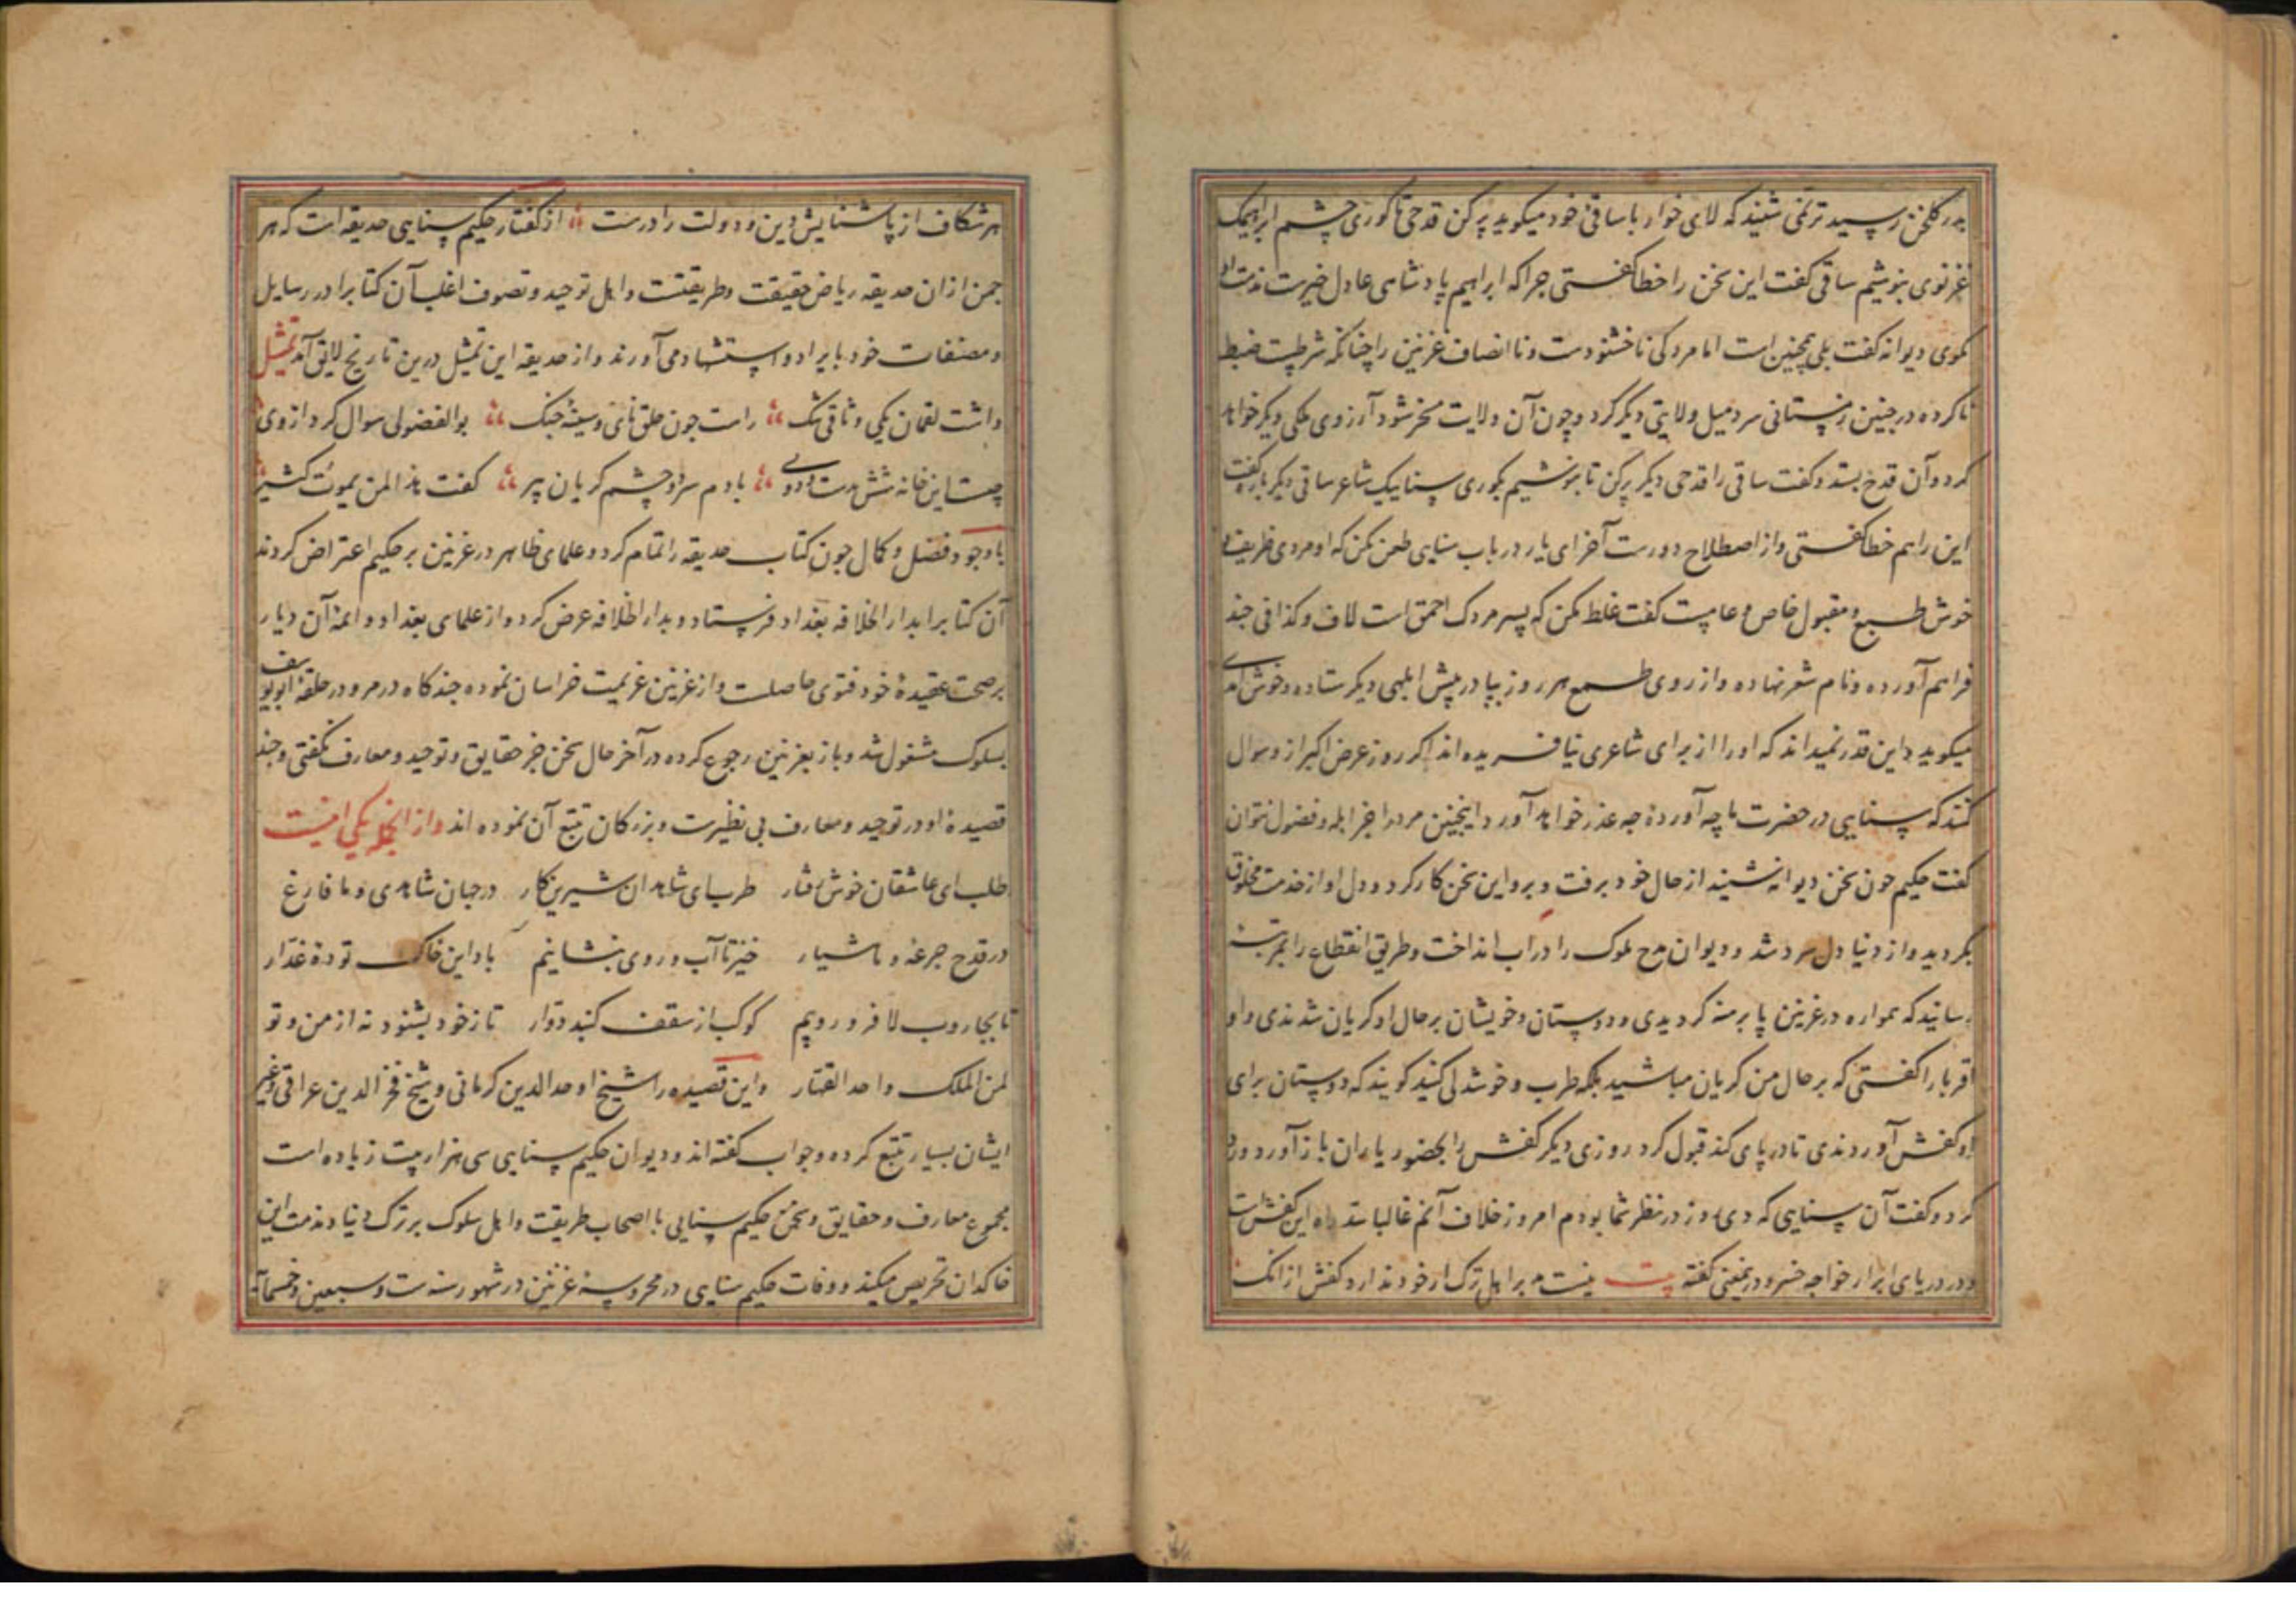 بدر گلخن رسید ترنمی شنید که لای خوار با ساقی خود میکوید پر کن قدحی تا کوری چشم ابراهیمک
غزنوی بنوشیم ساقی کفت این سخن را خطا کفتستی جرا که ابراهیم پادشاهی عادل خیرست مذمت او
مکوی دیوانه کفت بلی همچنین است اما مردکی ناخشنودست و ناانصاف غزنین را چنانکه شرطیست ضبط
ناکرده در جنین زمستانی سرد میل ولایتی دیکر کرد و چون آن ولایت مسخر شود آرزوی ملکی دیکر خواهد
کرد و آن قدح بستد و کفت ساقی را قدحی دیکر پر کن تا بنوشیم بکوری سناییک شاعر ساقی دیکر بار کفت
این را هم خطا کفتستی و از اصطلاح دورست آخر ای یار در باب سنایی طعن مکن که او مردی ظریف و
خوش طبع و مقبول خاص و عامیست کفت غلط مکن که پسر مردک احمق است لاف و کذافی جند
فراهم آورده و نام شعر نهاده و از روی طمع هر روز بپا در پیش ابلهی دیکر ستاده و خوش آمدی
میکوید و این قدر نمیداند که او را از برای شاعری نیافریده اند اکر روز عرض اکبر از و سوال
کنند که سنایی در حضرت ما چه آوردهٔ جه عذر خواهد آورد اینجنین مرد را جز ابله و فضول نتوان
کفت حکیم جون سخن دیوانه شنید از حال خود برفت و برو این سخن کار کرد و دل او از خدمت مخلوق
بکردید و از دنیا دل سرد شد و دیوان مدح ملوک را در آب انداخت و طریق انقطاع را بمرتبهٔ
رسانید که همواره در غزنین پا برهنه کردیدی و دوستان و خویشان بر حال او کریان شدندی و او
اقربا را کفتستی که بر حال من کریان مباشید بلکه طرب و خوشدلی کنید کویند که دوستان برای
او کفش آوردندی تا در پای کند قبول کرد روزی دیکر کفش را بحضور یاران باز آورد و رد
کرد و کفت آن سنایی که دی روز در نظر شما بودم امروز خلاف آنم غالبا سد راه این کفش است
و در دریای ابرار خواجه خسرو درینمعنی کفته بیت نیست مر اهل ترک ار خود ندارد کفش از آنک
هر شکاف از پاشنایش دین و دولت را درست از کفتار حکیم سنایی حدیقه است که هر
جمن از ان حدیقه ریاض حقیقت و طریقتست و اهل توحید و تصوف اغلب آن کتابرا در رسایل
و مصنفات خود بایراد و استشهاد می آورند و از حدیقه این تمثیل درین تاریخ لایق آمد تمثیل
داشت لقمان یکی وثاقی تنک راست جون حلق نای و سینهٔ جنک بوالفضولی سوال کرد از وی
چیست این خانه شش بدست و دو پی با دم سرد و چشم کریان پیر کفت هذا لمن یموت کثیر
باوجود فضل و کمال جون کتاب حدیقه را تمام کرد و علمای ظاهر در غزنین بر حکیم اعتراض کردند
آن کتابرا بدار الخلافه بغداد فرستاد و بدار الخلافه عرض کرد و از علمای بغداد و ائمهٔ آن دیار
بر صحت عقیدهٔ خود فتوی حاصلست و از غزنین عزیمت خراسان نموده جند کاه در مرو در حلقهٔ ابویوسف
بسلوک مشغول شد و باز بغزنین رجوع کرده در آخر حال سخن جز حقایق و توحید و معارف نکفتی و جند
قصیدهٔ او در توحید و معارف بی نظیرست و بزرکان تتبع آن نموده اند و از انجمله یکی اینست
طلب ای عاشقان خوش رفتار طرب ای شاهدان شیرین کار در جهان شاهدی و ما فارغ
در قدح جرعهٔ و ما هشیار خیز تا آب و روی بنشانیم باد این خاک تودهٔ غدار
تا بجاروب لا فرو روبیم کوکب از سقف کنبد دوار تا ز خود بشنود نه از من و تو
لمن الملک واحد القهار و این قصیده را شیخ اوحد الدین کرمانی و شیخ فخر الدین عراقی و غیر
ایشان بسیار تتبع کرده و جواب کفته اند و دیوان حکیم سنایی سی هزار بیت زیاده است
مجموع معارف و حقایق و سخن حکیم سنایی با اصحاب طریقت و اهل سلوک بر ترک دنیا و مذمت این
خاکدان تحریص میکند و وفات حکیم سنایی در محروسه غزنین در شهور سنه ست و سبعین و خمسمائه